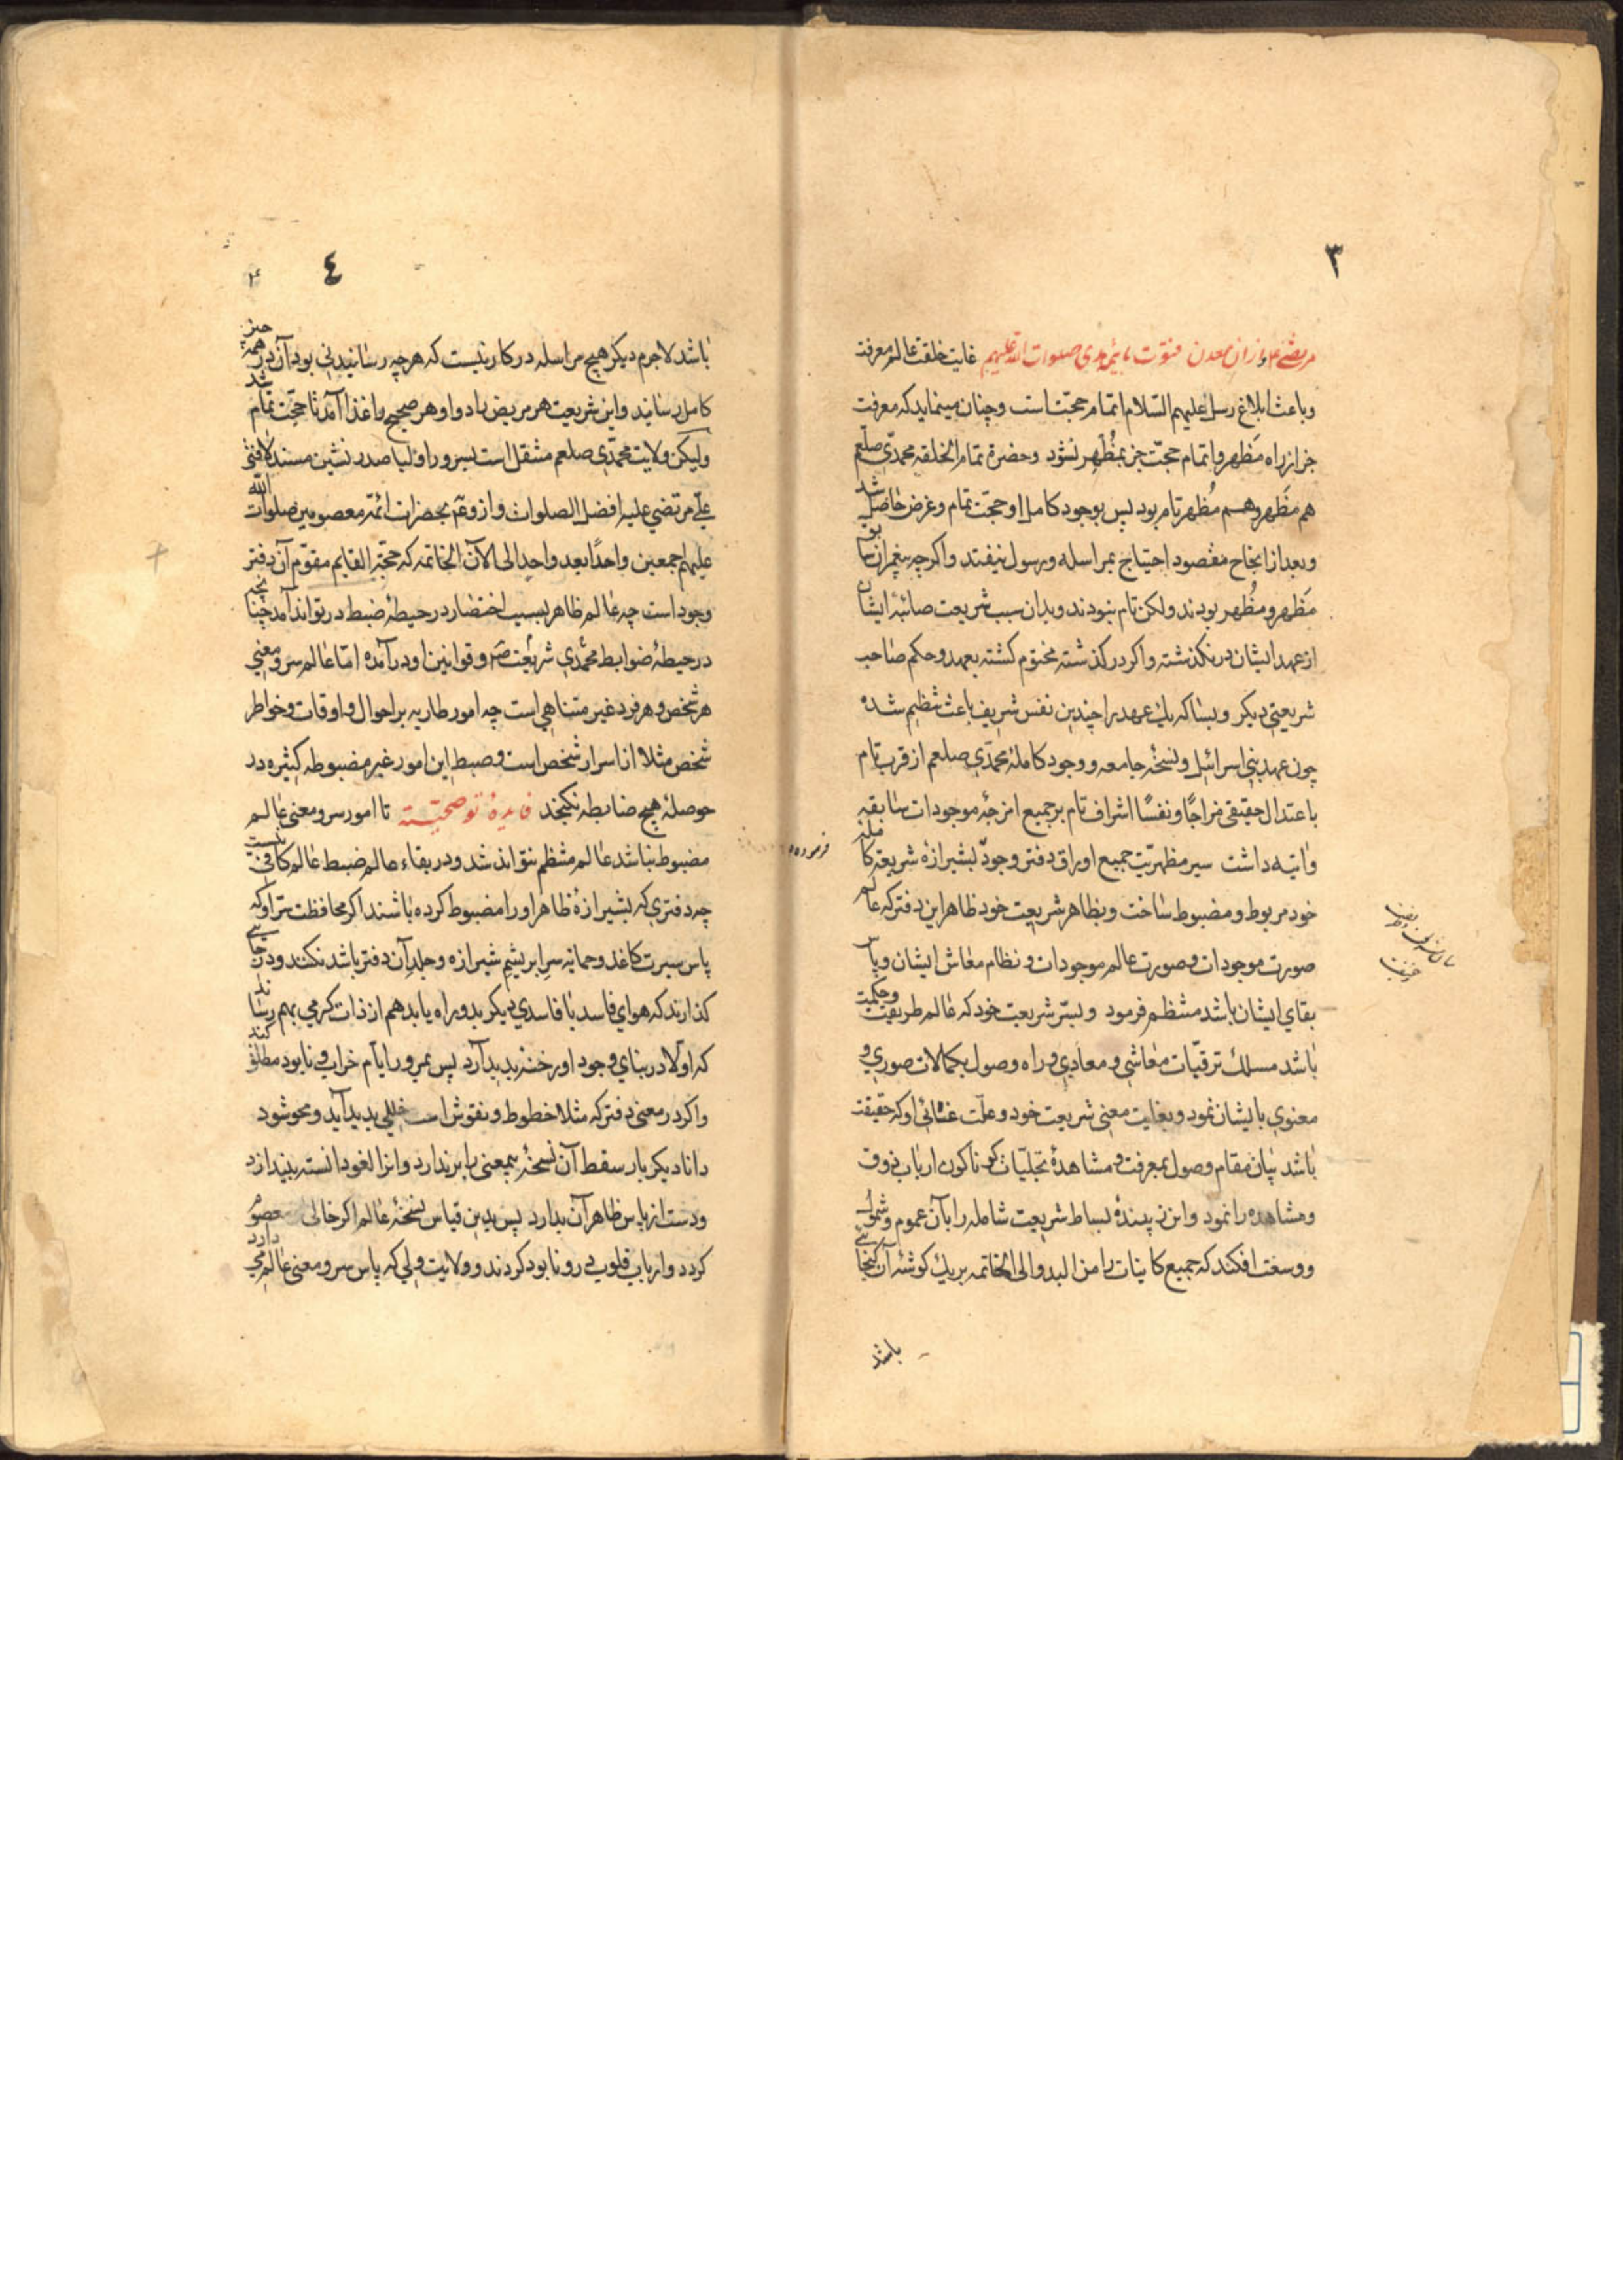 ٣
مرتضی و از ان معدن فتوت بایمٔه هدی صلوات الله علیهم غایت خلقت عالم معرفت
و باعث ابلاغ رسل علیهم السّلام اتمام حجّت است و چنان مینماید که معرفت
جز از راه مَظهر و اتمام حجّت جز بمُظهِر نشود و حضرة تمام الخلقه محمدّی صلّعم
هم مَظهر و هم مُظهر تام بود پس بوجود کامل او حجّت تمام و غرض حاصل شد
و بعد از انجاح مقصود احتیاج بمراسله و رسول نیفتد و اکر چه پیغمبران سابق
مَظهر و مُظهر بودند ولکن تام نبودند و بدان سبب شریعت صائبهٔ ایشان
از عهد ایشان در نکذشته و اکر در کذشته مختوم کشته بعهد و حکم صاحب
شریعتی دیکر و بسا که یك عهد را چندین نفس شریف باعث تنظیم شده
چون عهد بنی اسرائیل و نسخهٔ جامعه و وجود کاملهٔ محمدّی صلعم از قرب تام
باعتدال حقیقی مزاجًا و نفسًا اشراف تام بر جمیع امزجهٔ موجودات سابقه
و اتیه داشت سیر مظهریّت جمیع اوراق دفتر وجود بشیرازه شریعة کامله
خود مربوط و مضبوط ساخت و بظاهر شریعت خود ظاهر این دفتر که عالم
صورت موجودات و صورت عالم موجودات و نظام معاش ایشان و پاس
بقای ایشان باشد منتظم فرمود و بسّر شریعت خود که عالم طریقت و حکمت
باشد مسلك ترقیّات معاشی و معادی و راه وصول بکمالات صوری و
معنوی بایشان نمود و بغایت معنی شریعت خود و علّت غائی او که حقیقت
باشد بیان مقام وصول بمعرفت و مشاهدهٔ تجلیّات کوناکون ارباب ذوق
و مشاهده را نمود و این زیبندهٔ بساط شریعت شامله را بآن عموم و شمول
و وسعت افکند که جمیع کاینات را من البدو الی الخاتمه بریك کوشهٔ آن کنجایی
باشد
فرموده
٤
باشد لاجرم دیکر هیچ مراسله در کار نیست که هر چه رسانیدنی بود آن در همه چیز
کامل رسانید و این شریعت هر مریض را دوا و هر صحیح را غذا آمد تا حجّت تمام شد
ولیکن ولایت محمدّی صلعم منتقل است بسرور اولیا صدر نشین مسند لافتی
علی مرتضی علیه افضل الصلوات و از وی بحضرات ائمهٔ معصومین صلوات الله
علیهم اجمعین واحدًا بعد واحد الی الآن الخاتمه که حجّة القایم مقوّم آن دفتر
وجود است چه عالم ظاهر بسبب اختصار در حیطهٔ ضبط در تواند آمد چنانچه
در حیطهٔ ضوابط محمّدی شریعت و قوانین او در آمده امّا عالم سر و معنی
هر شخص و هر فرد غیر متناهی است چه امور طاریه بر احوال و اوقات و خواطر
شخص مثلا از اسرار شخص است و ضبط این امور غیر مضبوطه کثیره در
حوصلهٔ هیچ ضابطه نکنجد فایدهٔ توضحیّته تا امور سر و معنی عالم
مضبوط نباشد عالم منتظم نتواند شد و در بقاء عالم ضبط عالم کافی نیست
چه دفتری که بشیرازهٔ ظاهر او را مضبوط کرده باشند اکر محافظت سّر او که
پاس سیرت کاغذ و حمایة سر ابریشم شیرازه و جلد آن دفتر باشد نکنند و در جایی
کذارند که هوای فاسد یا فاسدی دیکر بدو راه یابد هم از ذات کرمی بهم رساند
که اوّلا در بنای وجود او رخنه پدید آرد پس بمرور ایّام خراب و نابود مطلق کند
و اکر در معنی دفتر که مثلا خطوط و نقوش است خللی پدید آید و محو شود
دانا دیکر بار سقط آن نسخهٔ بیمعنی را بر ندارد و انرا لغو دانسته بیندازد
و دست از پاس ظاهر آن بدارد پس بدین قیاس نسخهٔ عالم اکر خالی معصوم
کردد و ارباب قلوب در و نابود کردند و ولایت ولی که پاس سر و معنی عالم می دارد